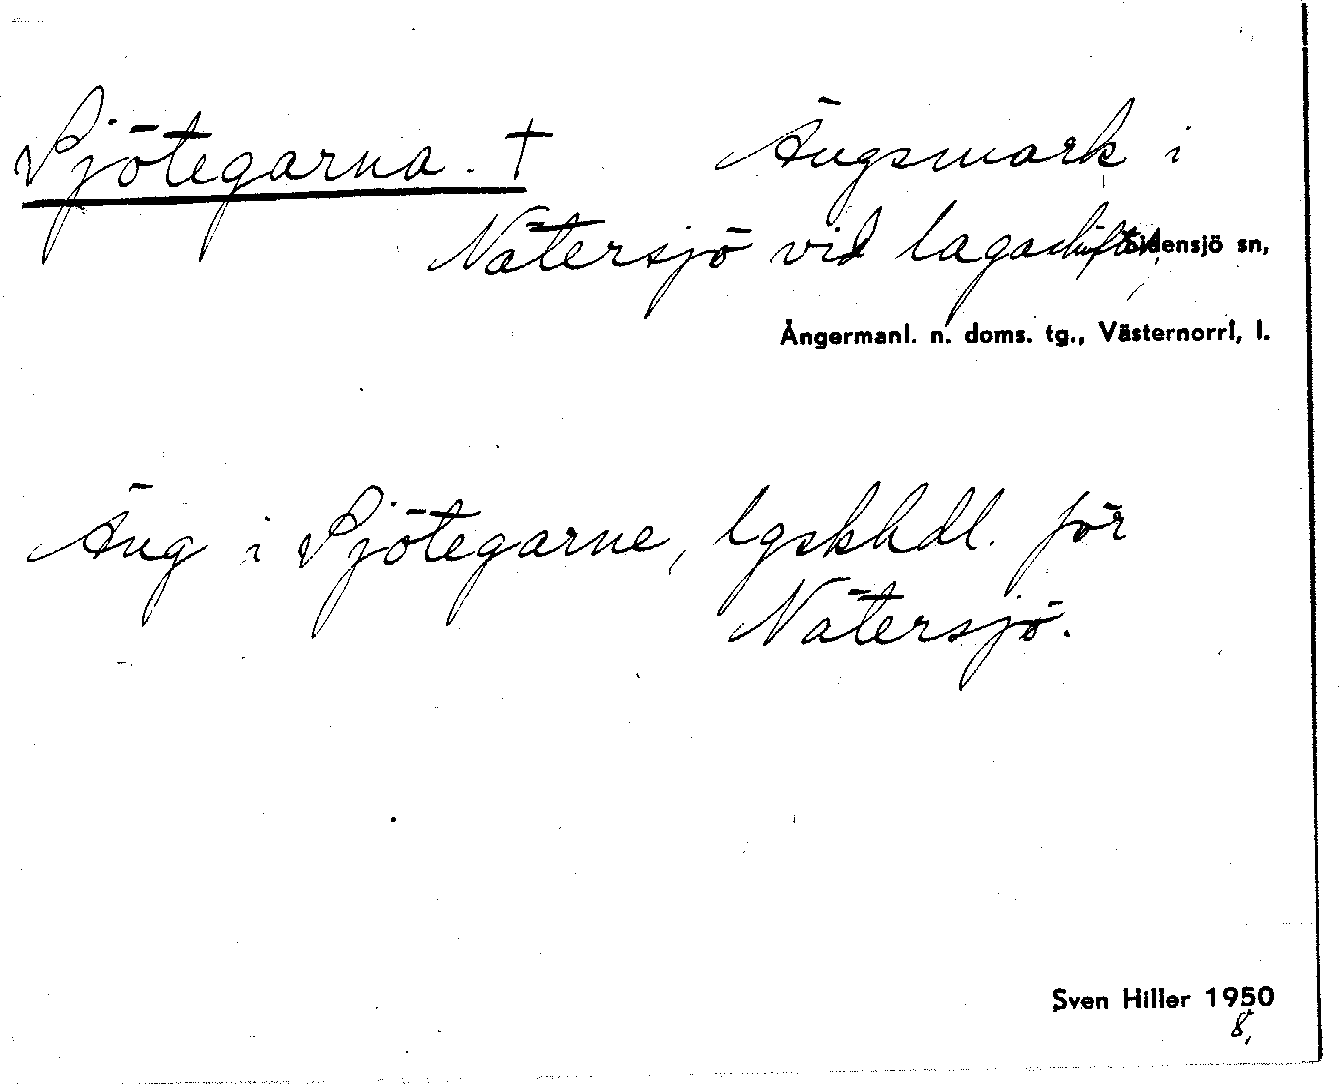 Sjötegarna. † Ängsmark i
Nätersjö vid lagaskiftet, Sidensjö sn,
Ångermanl. n. doms. tg., Västernorrl, l.
Äng i Sjötegarne, lgskhdl. för
Nätersjö.
Sven Hiller 1950
8,